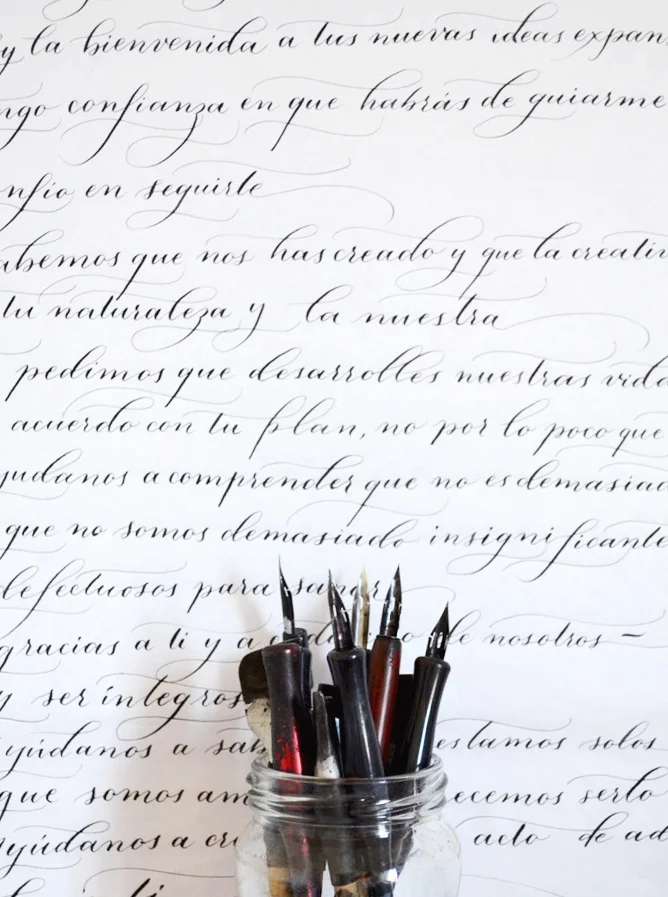 y la bienvenida a tus nuevas ideas expan
ngo confianza en que habrás de guiarme
nfío en seguirte
abemos que nos has creado y que la creativ
tu naturaleza y la nuestra
pedimos que desarrolles nuestras vida
acuerdo con tu plan, no por lo poco que
yudanos a comprender que no es demasiad
que no somos demasiado insignificante
defectuosos para sanar
gracias a ti y a de nosotros –
y ser íntegros
ayúdanos a sab estamos solos
que somos am ecemos serlo
ayúdanos a cre acto de ad